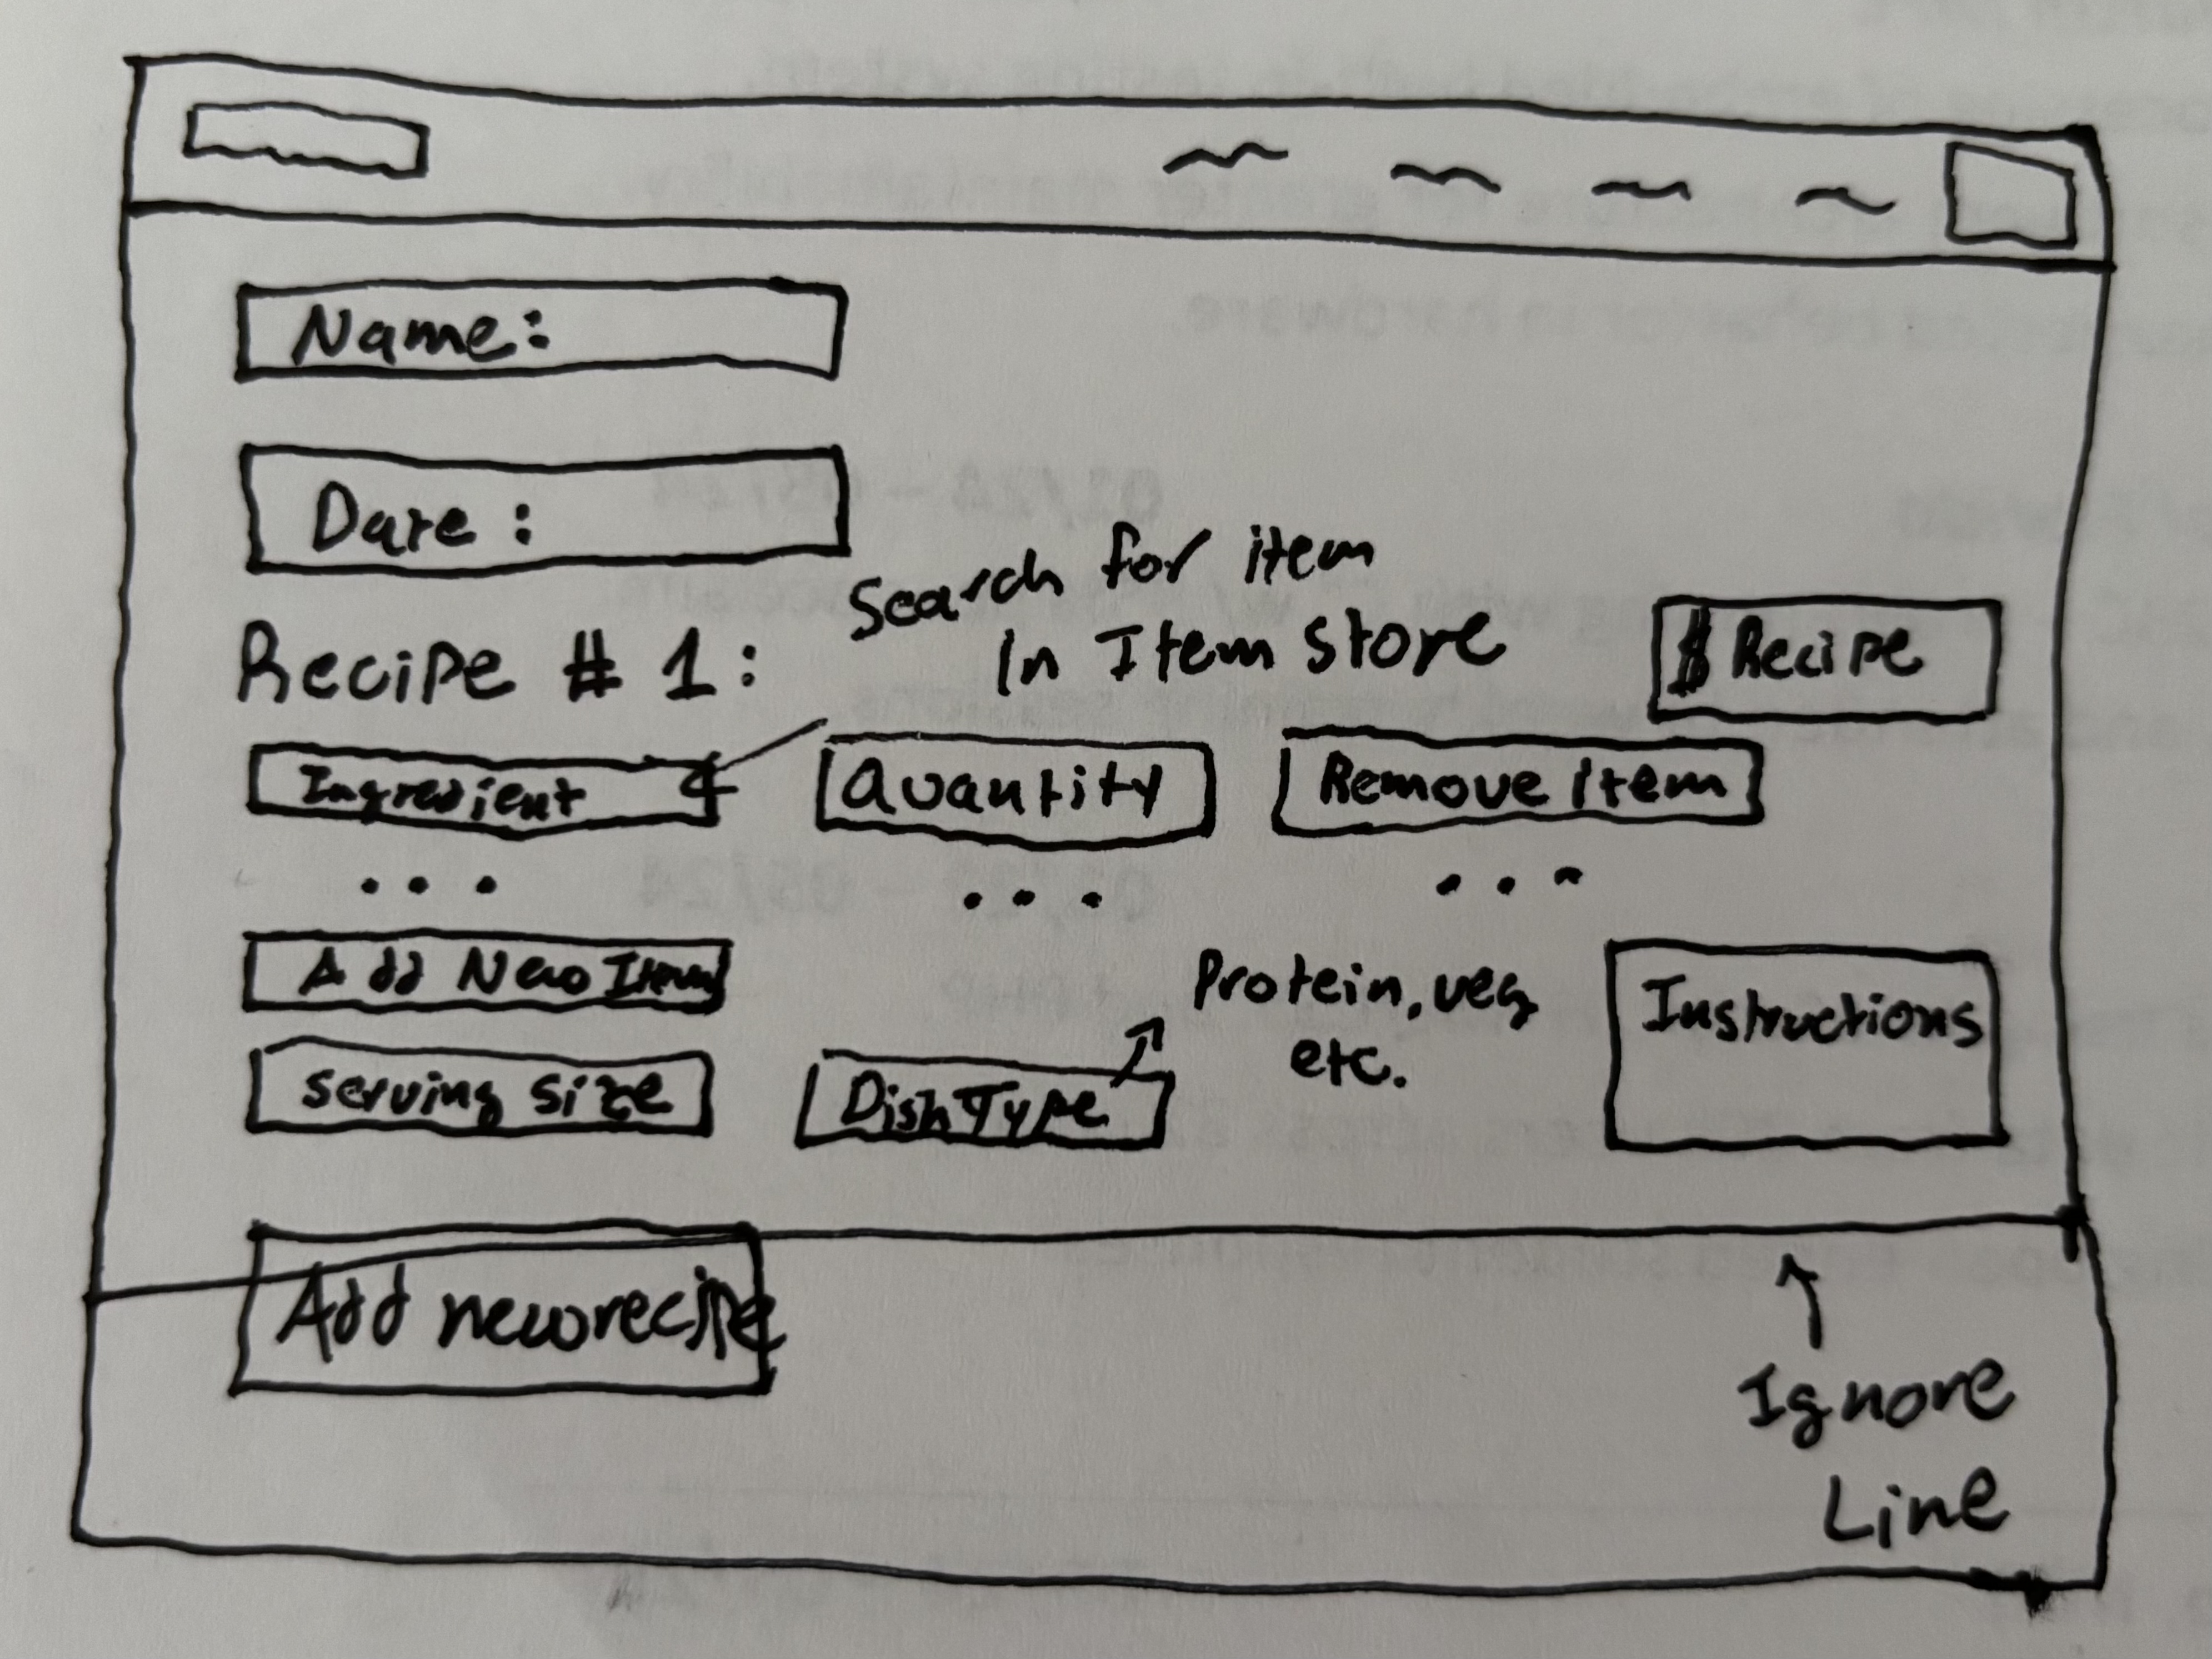 Name:
Date :
Search for item
In Item Store
Recipe # 1:
$ Recipe
Ingredient
Quantity
Remove Item
...
...
...
Add New Item
Protein, veg
etc.
Instructions
Serving Size
Dish Type
Add new recipe
Ignore
Line